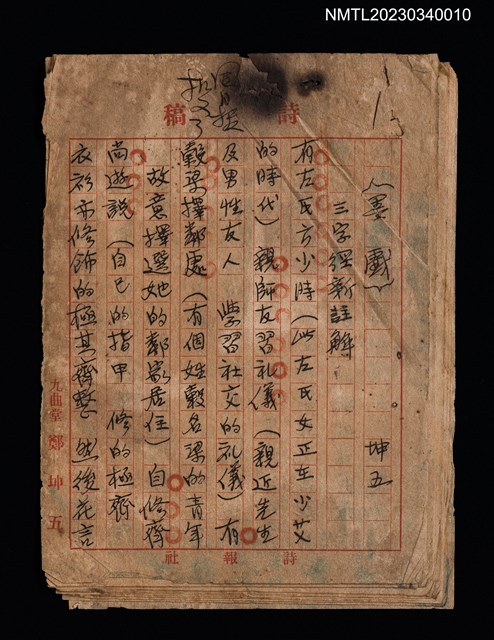 NMTL20230340010
詩
稿
（墨戲）
坤五
三字經新註解
有左氏方少時（此左氏女正在少艾
的時代）親師友習礼儀（親近先生
及男性友人 學習社交的礼儀）有
穀梁擇鄰處（有個姓穀名梁的青年
故意擇選她的鄰家居住）自修齊
尚遊說（自已的指甲 修的極齊
衣衫亦修飾的極其齊整 然後花言
九曲堂 鄭坤五
詩報社